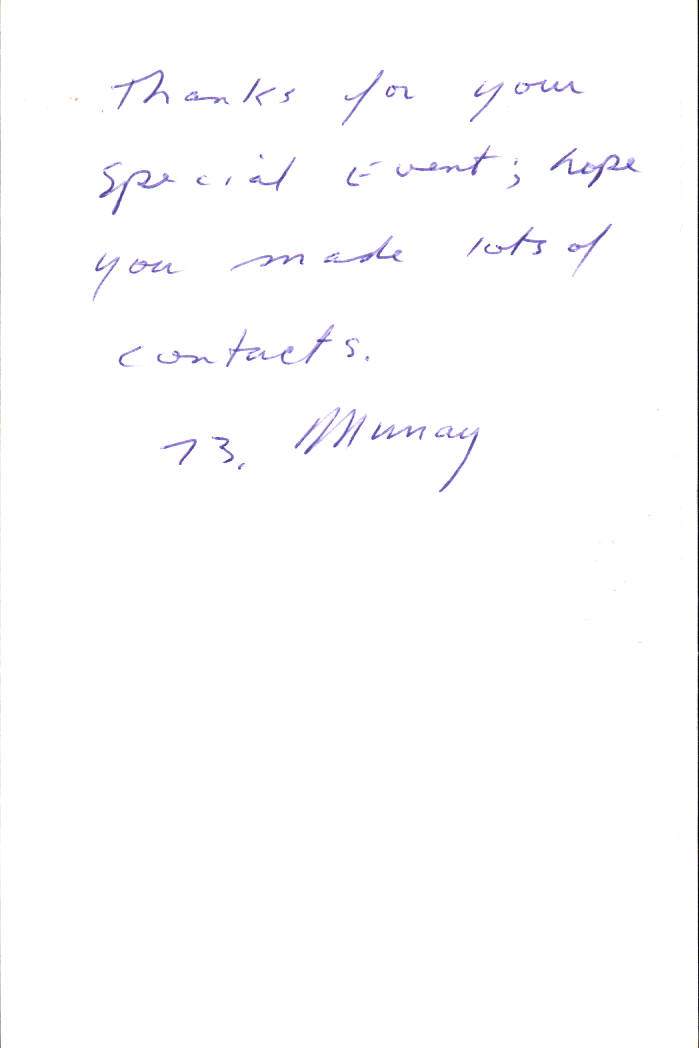 Thanks for your
Special Event; hope
you made lots of
contacts.
73. Murray